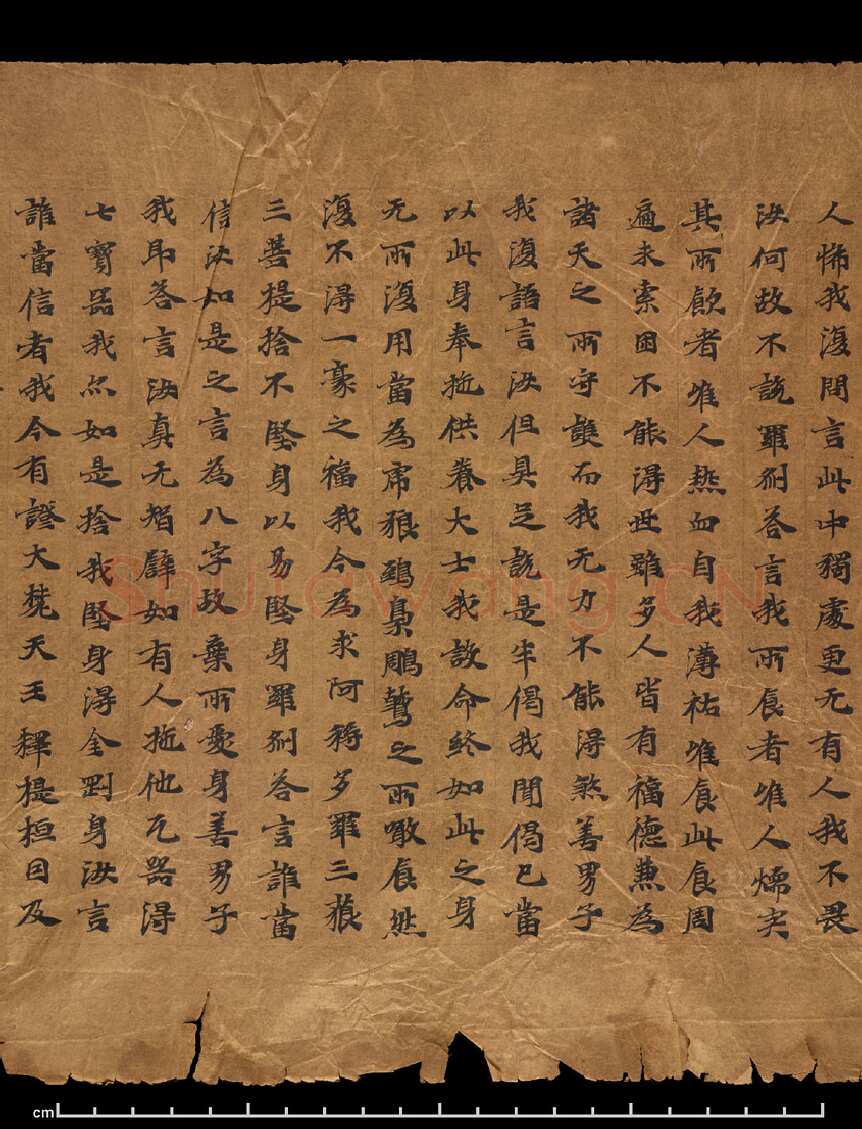 人怖我復問言此中獨處更无有人我不畏
汝何故不說羅剎答言我所食者唯人煗宍
其所飲者唯人熱血自我薄祐唯食此食周
遍求索困不能得世雖多人皆有福德兼為
諸天之所守護而我无力不能得煞善男子
我復語言汝但具足說是半偈我聞偈已當
以此身奉施供養大士我設命終如此之身
无所復用當為虎狼鵄梟鵰鷲之所噉食然
復不得一豪之福我今為求阿耨多羅三藐
三菩提捨不堅身以易堅身羅剎答言誰當
信汝如是之言為八字故棄所愛身善男子
我即答言汝真无智譬如有人施他瓦器得
七寶器我亦如是捨我堅身得金剛身汝言
誰當信者我今有證大梵天王釋提桓因及
Shufawang.CN
cm